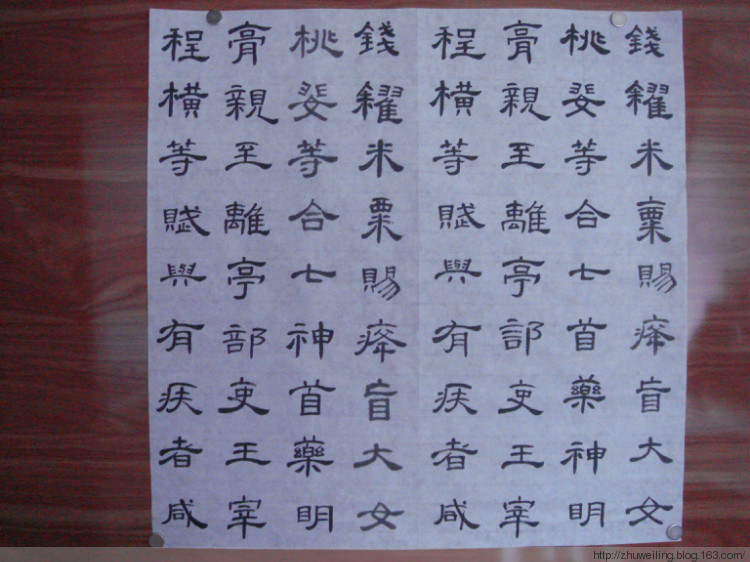 錢糴米粟賜癃盲大女
桃婓等合七首藥神明
膏親至離亭部吏王宰
程橫等賦與有疾者咸
錢糴米粟賜癃盲大女
桃婓等合七神首藥明
膏親至離亭部吏王宰
程橫等賦與有疾者咸
http://zhuweiling.blog.163.com/